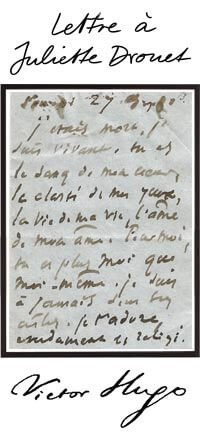 Lettre à
Juliette Drouet
27
j'étais mort, je
suis vivant. tu es
le sang de mon cœur,
la clarté de mes yeux,
la vie de ma vie, l'âme
de mon âme. Pour moi,
tu es plus moi que
moi-même. je suis
à jamais dans tes
. je t'adore
ardemment et religi.
Victor Hugo